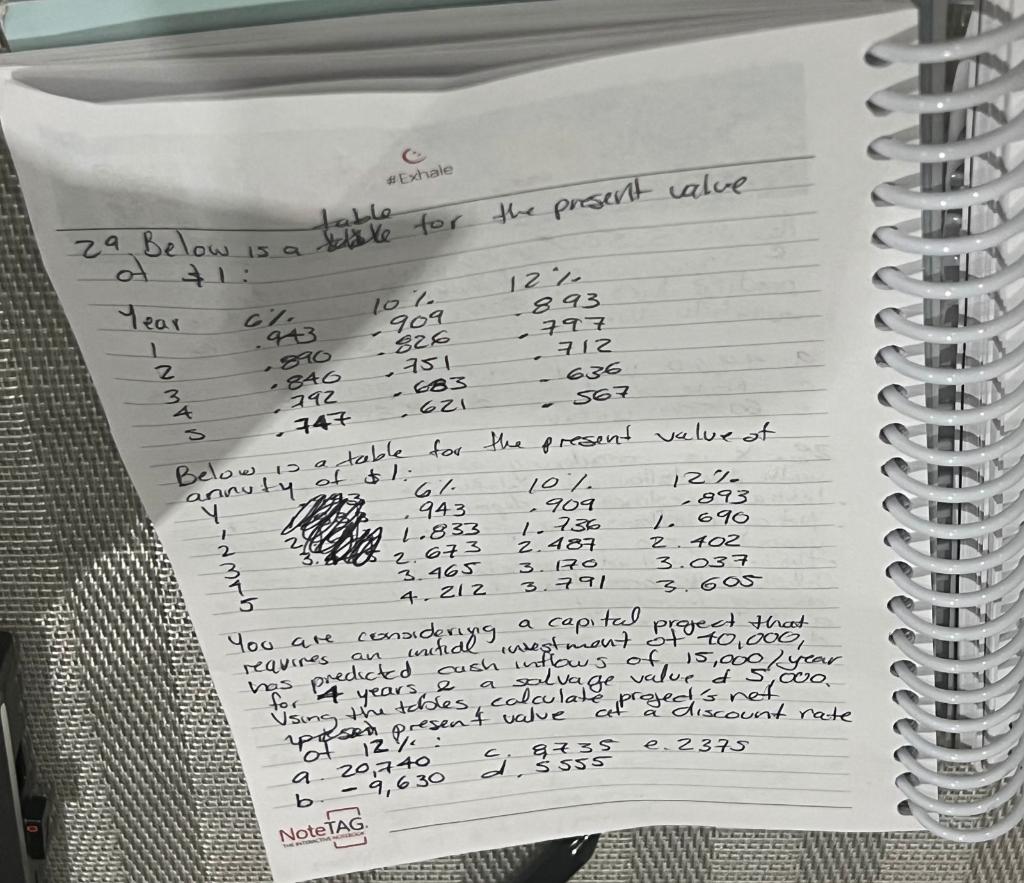 #Exhale
table
29. Below is a for the present value
of $1:
Year 6% 10% 12%
1 .943 .909 .893
2 .890 .826 .797
3 .840 .751 .712
4 .792 .683 .636
5 .747 .621 .567
Below is a table for the present value of
annuty of $1:
Y 6% 10% 12%
1 .943 .909 .893
2 1.833 1.736 1.690
3 2.673 2.487 2.402
4 3.465 3.170 3.037
5 4.212 3.791 3.605
You are considering a capital project that
requires an initial investment of 40,000,
has predicted cash inflows of 15,000/year
for 4 years & a salvage value of 5,000.
Using the tables, calculate project's net
present value at a discount rate
of 12%:
a. 20,740 c. 8735 e. 2375
b. -9,630 d. 5555
NoteTAG.
THE INTERACTIVE NOTEBOOK